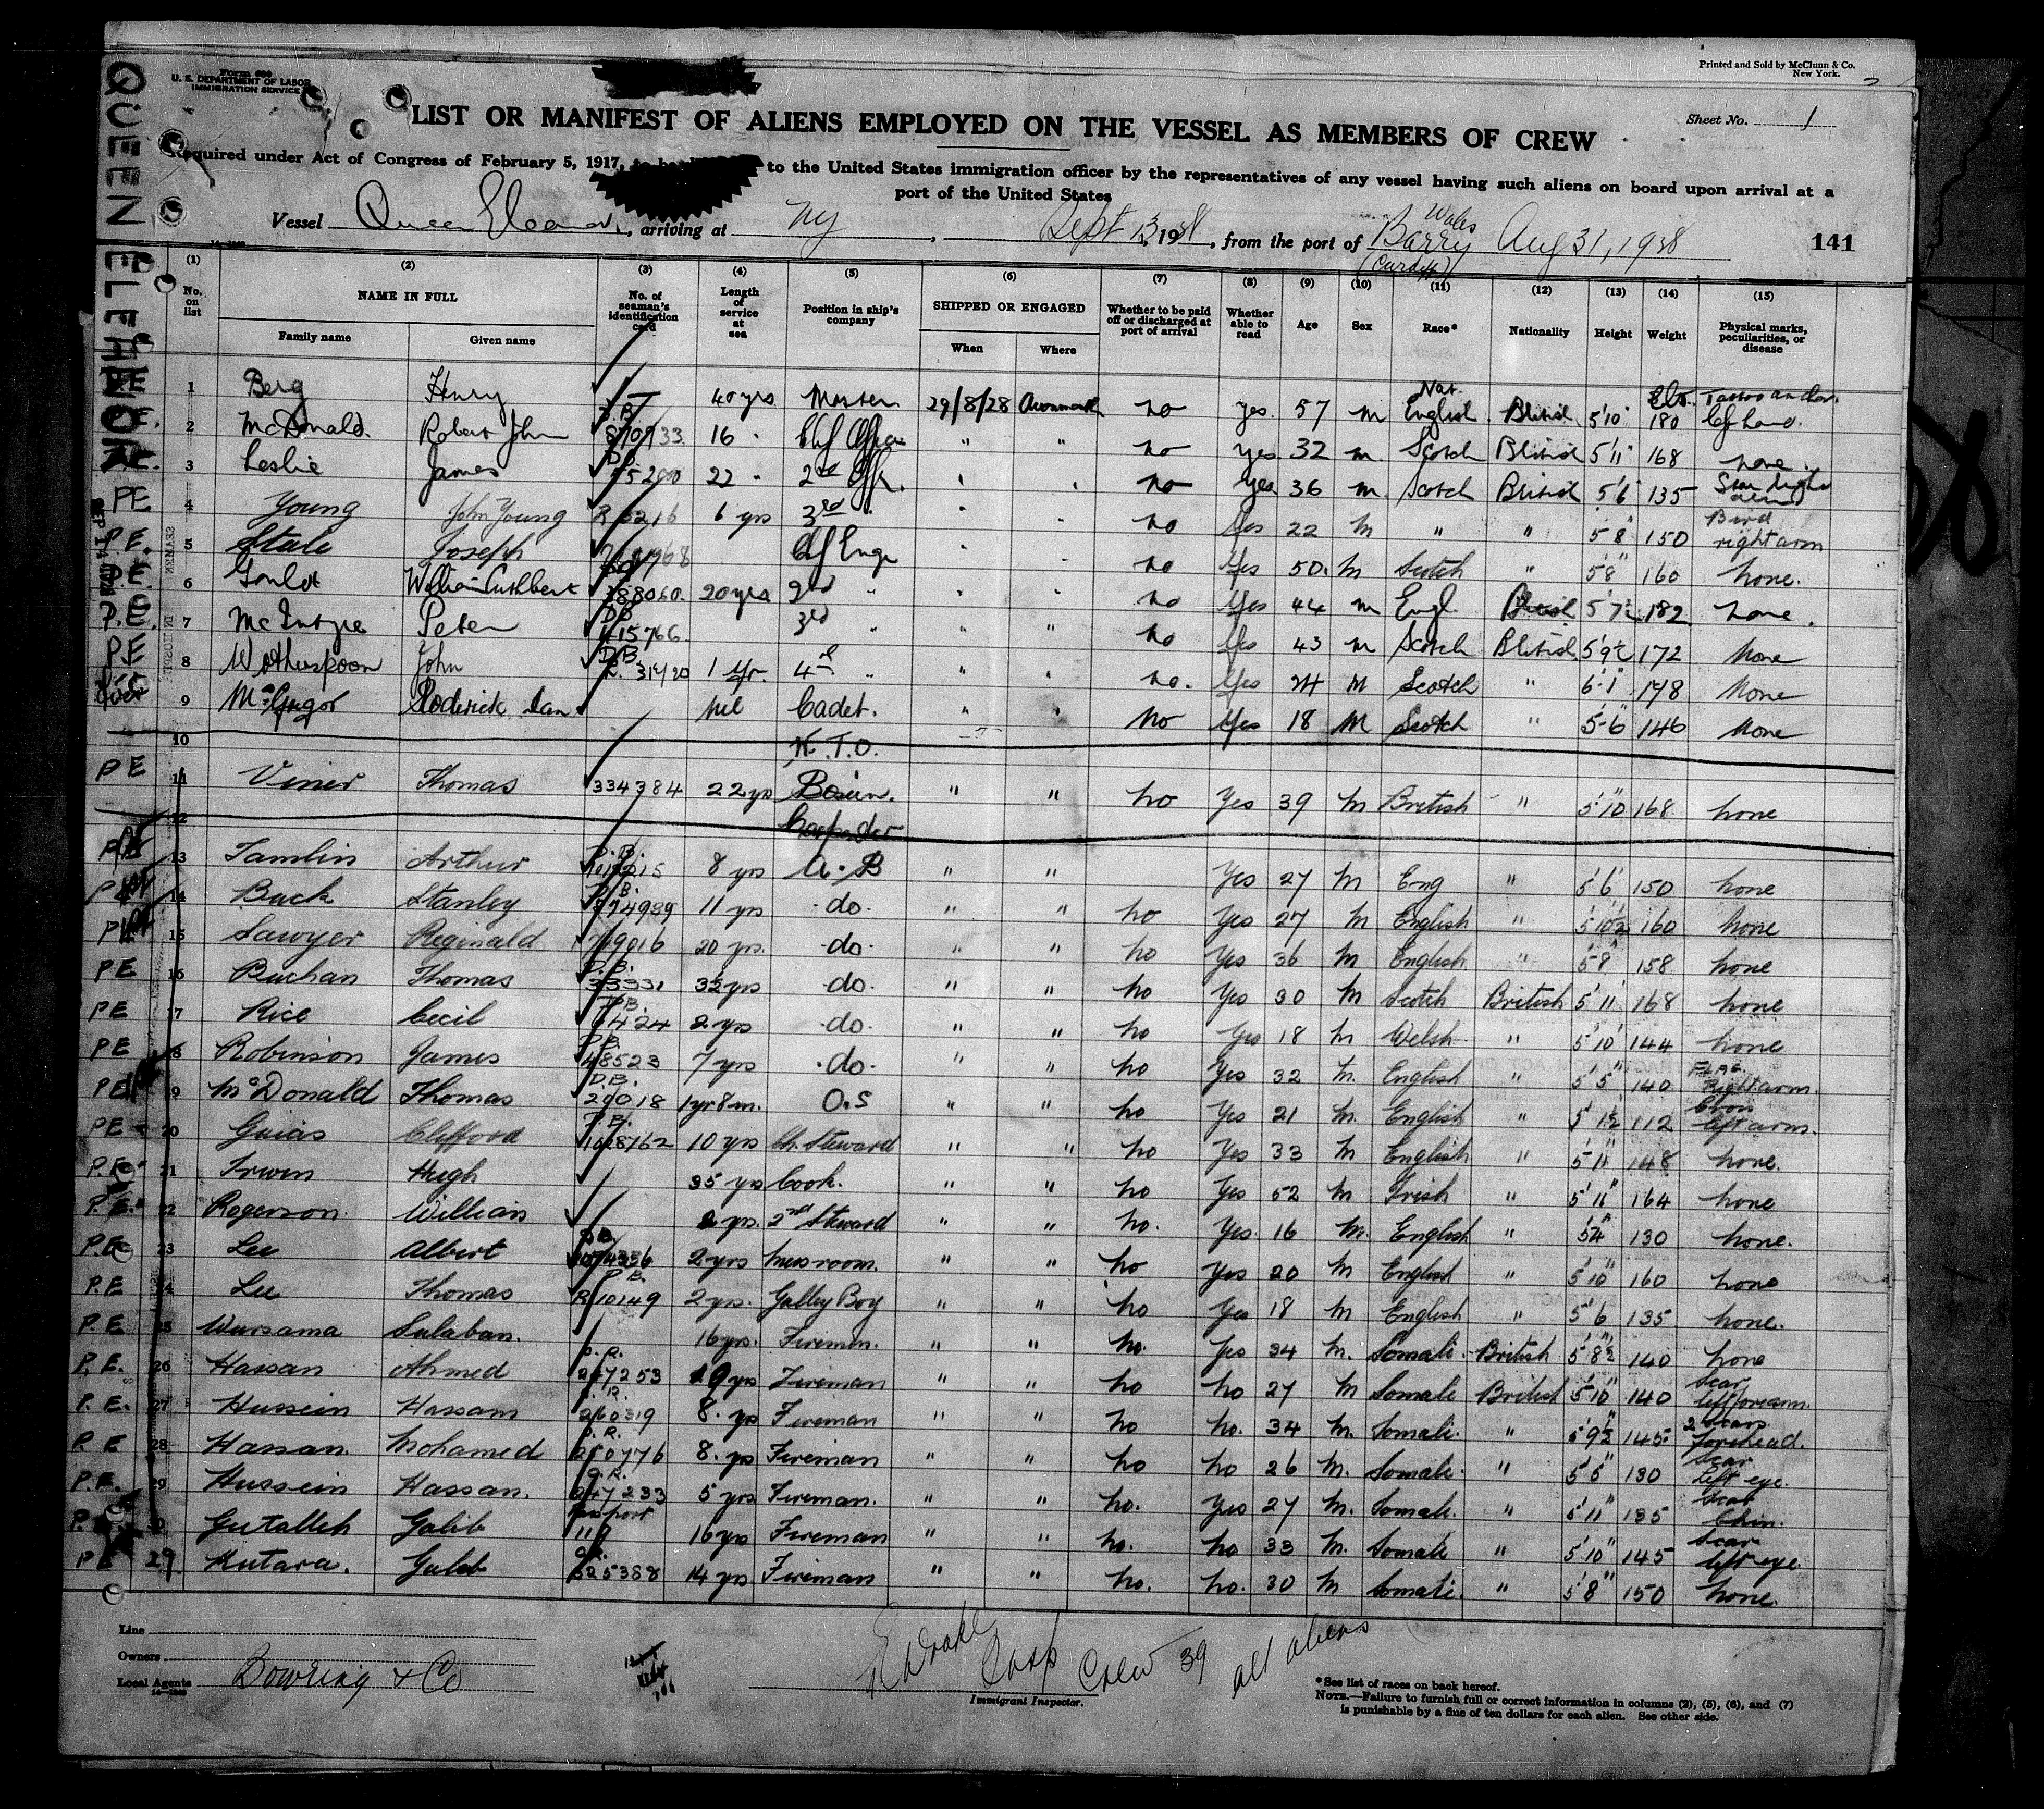 Form 680
U. S. DEPARTMENT OF LABOR
IMMIGRATION SERVICE
Printed and Sold by McClunn & Co.
New York.
QUEEN ELEANOR
LIST OR MANIFEST OF ALIENS EMPLOYED ON THE VESSEL AS MEMBERS OF CREW
Sheet No. 1
Required under Act of Congress of February 5, 1917, to the United States immigration officer by the representatives of any vessel having such aliens on board upon arrival at a
port of the United States
Vessel Queen Eleanor, arriving at NY, Sept 13, 19, from the port of Barry Wales (Cardiff) Aug 31, 141
(1) (2) (3) (4) (5) (6) (7) (8) (9) (10) (11) (12) (13) (14) (15)
No. on list NAME IN FULL No. of seaman's identification card Length of service at sea Position in ship's company SHIPPED OR ENGAGED Whether to be paid off or discharged at port of arrival Whether able to read Age Sex Race* Nationality Height Weight Physical marks, peculiarities, or disease
Family name Given name When Where
PE 1 Berg Henry 40 yrs Master 29/8/28 Avonmouth no yes 57 m Nat. English British 5'10 180 Tattoo anchor lef hand.
2 McDonald Robert John 16 " Chf Officer " " no yes 32 m Scotch British 5'11 168 none.
3 Leslie James 22 " 2nd Offr. " " no yes 36 m Scotch British 5'6 135
PE 4 Young John Young 6 yrs 3rd " " " no yes 22 M " " 5 8 150 Bird right arm
P.E. 5 Joseph Chf Engr " " no Yes 50 M Scotch " 5'8 160 none.
P.E. 6 William Cuthbert 20 yrs 2nd " " " no Yes 44 m Engl. British 5 7½ 182 none.
P.E. 7 McIntyre Peter 3rd " " " no Yes 43 m Scotch British 5 9½ 172 None
PE 8 Wotherspoon John 1 yr. 4th " " " no. Yes 24 M Scotch " 6'1 178 None
9 McGregor Roderick Ian nil Cadet. " " No Yes 18 M Scotch " 5-6 146 None
10 W.T.O.
PE 11 Viner Thomas 334384 22 yrs Bosun. " " no Yes 39 M British " 5'10 168 none
12 Carpenter
13 Tamlin Arthur 8 yrs A.B " " Yes 27 M Eng " 5'6 150 none
14 Buck Stanley 11 yrs -do- " " no Yes 27 M English " 5'10½ 160 none
15 Sawyer Reginald 20 yrs. -do- " " no Yes 36 M English " 5'8 158 none
PE 16 Buchan Thomas 32 yrs -do- " " no Yes 30 M Scotch British 5'11 168 none
PE 17 Rice Cecil 2 yrs -do- " " no Yes 18 M Welsh " 5'10 144 none
PE 18 Robinson James 48523 7 yrs -do- " " no Yes 32 M. English " 5'5" 140 FLAG. Right arm.
PE 19 McDonald Thomas D.B. 20018 1yr 8m. O.S " " no Yes 21 M. English " 5'1½ 112 left arm.
PE 20 Clifford 1028762 10 yrs Ch. Steward " " no Yes 33 M English " 5'11 148 none.
P.E. 21 Irwin Hugh 35 yrs Cook. " " no Yes 52 M Irish " 5'11" 164 none
P.E. 22 Rogerson William 2 yrs. 2nd Steward " " no. Yes. 16 M. English " 5'4" 130 none.
P.E 23 Lee Albert 2 yrs messroom. " " no Yes 20 M English " 5'10" 160 none
P.E 24 Lee Thomas R 10149 2 yrs. Galley Boy " " no Yes 18 M English " 5'6 135 none.
P.E 25 Warsama Sulaban. 16 yrs. Firemen. " " no. Yes 34 M. Somali. British 5'8½ 140 none
P.E. 26 Hassan Ahmed 247253 9 yrs Fireman " " no no 27 M Somali British 5'10" 140 Scar left forearm.
P.E. 27 Hussein Hassam 260319 8. yrs Fireman " " no no. 34 M. Somali. " 5'9½ 145 2 Scars Forehead.
P.E 28 Hassan Mohamed 210776 8. yrs Fireman " " no no 26 M. Somali. " 5'5" 130 Scar Left eye.
P.E. 29 Hussein Hassan. 247233 5 yrs Fireman. " " no. Yes 27 M. Somali. " 5'11" 135 Scar Chin.
30 Gutalleh Galib Passport 16 yrs Fireman " " no. no 33 M. Somali " 5'10" 145 Scar left eye
PE 29. Kutara. Galeb 325388 14 yrs Fireman " " no. no. 30 M Somali. " 5'8" 150 none.
Line
Owners
Local Agents Bowring & Co
Crew 39 all aliens
Immigrant Inspector.
*See list of races on back hereof.
NOTE.—Failure to furnish full or correct information in columns (2), (5), (6), and (7)
is punishable by a fine of ten dollars for each alien. See other side.